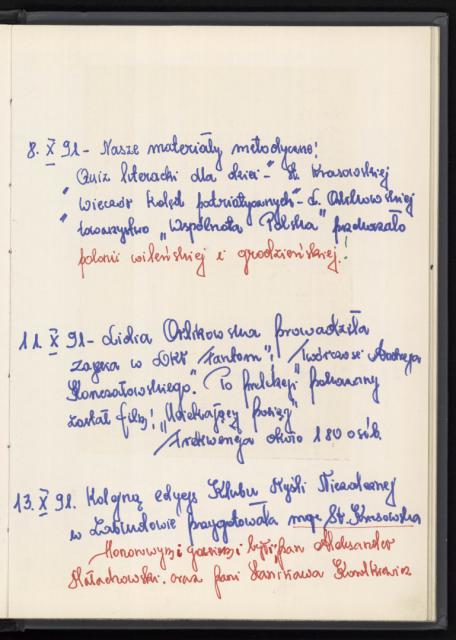 8. X 91 - Nasze materiały metodyczne!
Quiz literacki dla dzieci - St. Krasowskiej
"Wieczór kolęd patriotycznych" - L. Orlikowskiej
towarzystwo "Wspólnota Polska" przekazało
polonii wileńskiej i grodzieńskiej!
11. X 91 - Lidia Orlikowska prowadziła
zajęcia w DKF "Fantom", "Twórczość Andreja
Konczałowskiego." Po prelekcji pokazany
został film, "Uciekający pociąg"
Frekwencja około 180 osób.
13. X 91. Kolejną edycję Klubu Myśli Niezależnej
w Zabłudowie przygotowała mgr St. Krasowska
Honorowymi gośćmi byli: pan Aleksander
Małachowski oraz pani Stanisława